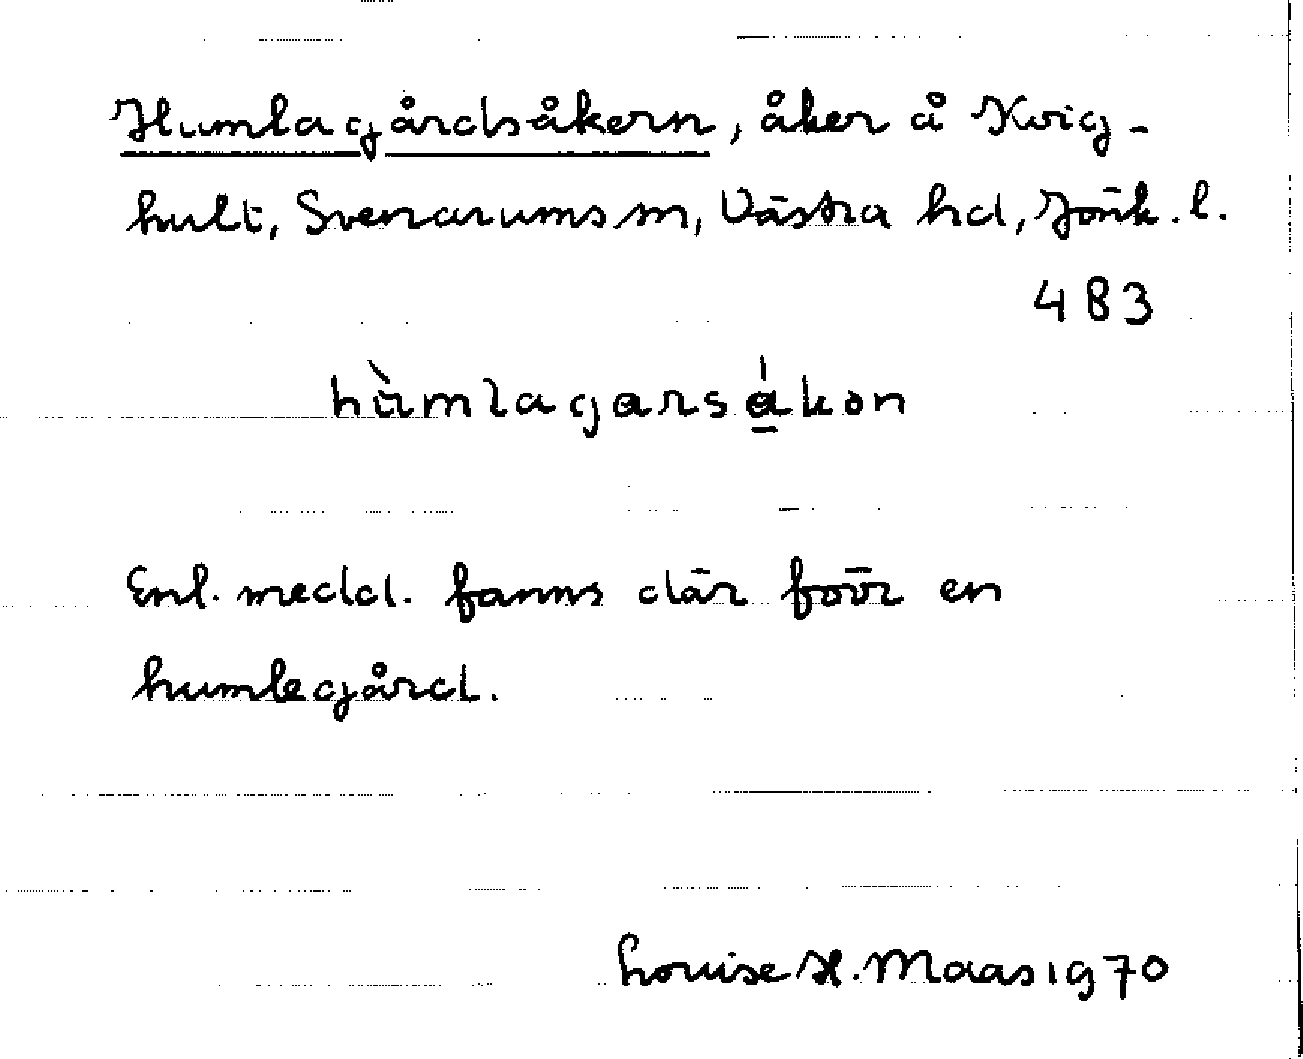 Humlagårdsåkern, åker å Kvig-
hult, Svenarums sn, Västra hd, Jönk. l.
483
hùmlagarsa̱̍kən
Enl. medd. fanns där förr en
humlegård.
Louise H. Maas 1970